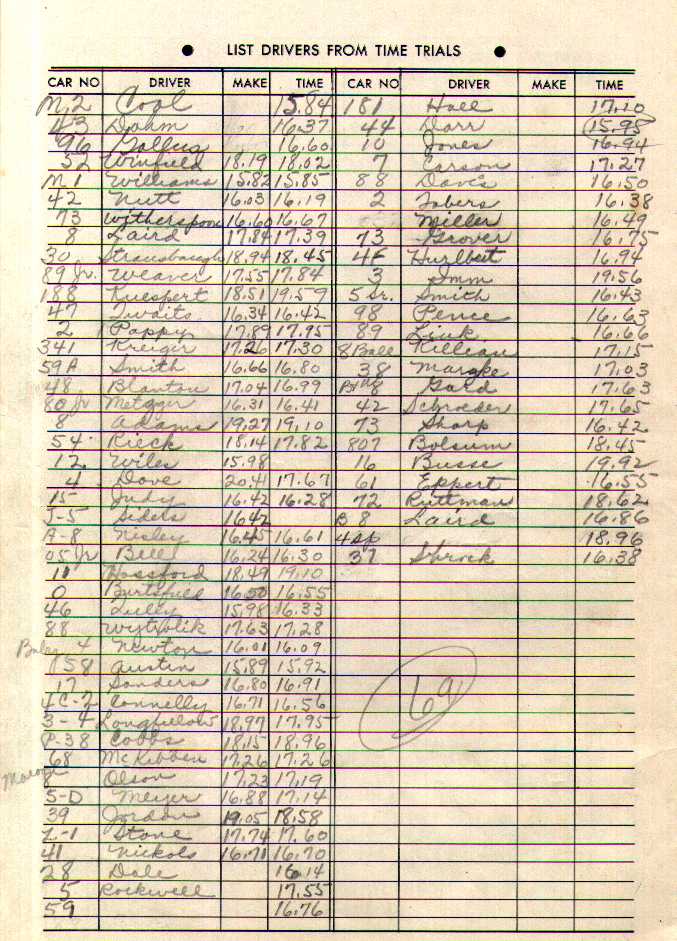 LIST DRIVERS FROM TIME TRIALS
CAR NO DRIVER MAKE TIME CAR NO DRIVER MAKE TIME
M.2 Cool 15.84 181 Hall 17.10
43 Dahm 16.37 44 Darr 15.98
96 Gallus 16.60 10 Jones 16.94
52 Winfield 18.19 18.02 7 Carson 17.27
M1 Williams 15.82 15.85 88 Davis 16.50
42 Nutt 16.03 16.19 2 Tobers 16.38
73 Witherspoon 16.60 16.67 Miller 16.49
8 Laird 17.84 17.39 73 Grover 16.75
30 Strausbaugh 18.94 18.45 4F Hurlbut 16.94
89 Jr. Weaver 17.55 17.84 3 Imm 19.56
188 Kuespert 18.51 19.59 5 Sr. Smith 16.43
47 Twaits 16.34 16.42 98 Pence 16.63
2 Pappy 17.89 17.95 89 Link 16.66
341 Kreiger 17.26 17.30 8 Ball Killean 17.15
59A Smith 16.66 16.80 38 Marake 17.03
48 Blanton 17.04 16.99 8 Gard 17.63
80 Jr Metzger 16.31 16.41 42 Schroeder 17.65
8 Adams 19.27 19.10 73 Sharp 16.42
54 Rieck 18.14 17.82 807 Bolsum 18.45
12 Wiles 15.98 16 Busse 19.92
4 Dove 20.41 17.67 61 Eppert 16.55
15 Judy 16.42 16.28 72 Ruttman 18.62
J-5 Sidels 16.42 B 8 Laird 16.86
A-8 Nisley 16.45 16.61 4 18.96
05 Jr Bell 16.24 16.30 37 Shrock 16.38
11 Hossford 18.49 19.10
0 Burtsfield 16.50 16.55
46 Lulley 15.98 16.33
88 Wytoolik 17.63 17.28
4 Newton 16.01 16.09
158 Austin 15.89 15.92
17 Sanders 16.80 16.91
4C-2 Connelly 16.71 16.56
69
3-4 Longfellow 18.97 17.95
P-38 Cobbs 18.15 18.96
68 McKibben 17.26 17.26
8 Olson 17.23 17.19
5-D Meyer 16.88 17.14
39 Jordon 19.05 18.58
L-1 Stone 17.74 17.60
41 Nickols 16.71 16.70
28 Dale 16.14
5 Rockwell 17.55
59 16.76